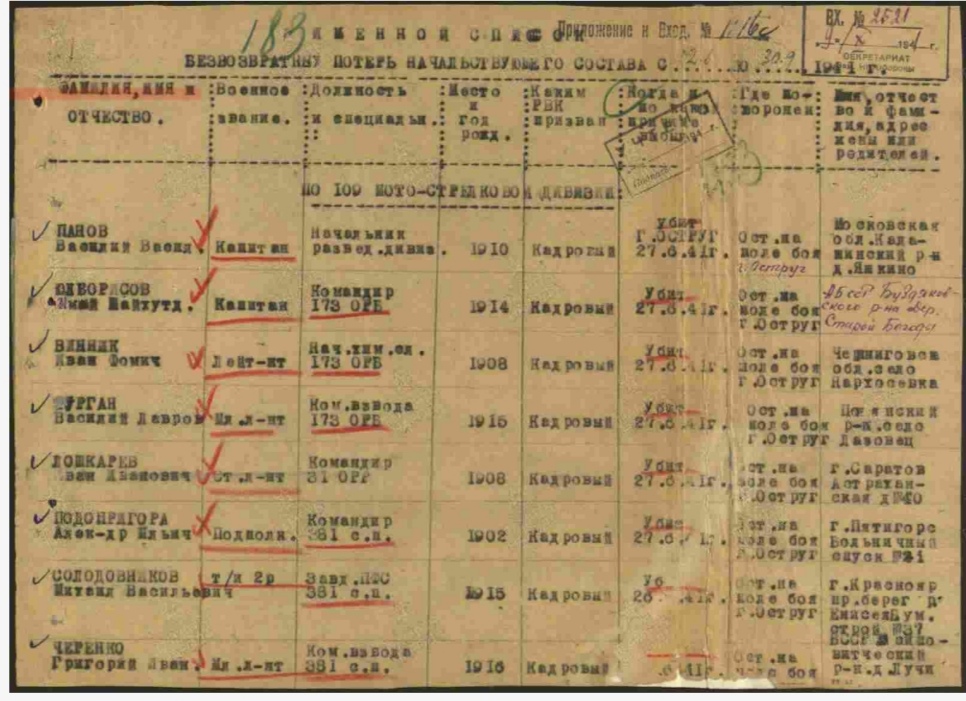 183
ИМЕННОЙ СПИСОК
Приложение к Вход. №
ВХ. № 2521
194 г.
СЕКРЕТАРИАТ
БЕЗВОЗВРАТНЫХ ПОТЕРЬ НАЧАЛЬСТВУЮЩЕГО СОСТАВА С ПО 30.9 1941 г.
ФАМИЛИЯ, ИМЯ и ОТЧЕСТВО.
Военное звание.
Должность и специальн.
Место и год рожд.
Каким РВК призван
Когда и по какой причине
Где похоронен:
Имя, отчество и фамилия, адрес жены или родителей.
ПО 109 МОТО-СТРЕЛКОВОЙ ДИВИЗИИ:
ПАНОВ
Василий Васил.
Капитан
Начальник
развед.дивиз.
1910
Кадровый
Убит
Г.ОСТРУГ
27.6.41г.
Ост.на
поле боя
г.Оструг
Московская
обл.
д.Якшино
Капитан
Командир
173 ОРБ
1914
Кадровый
Убит
27.6.41г.
Ост.на
поле боя
г.Оструг
АБССР
ского р-на дер.
Старой
ВИННИК
Иван Фомич
Лейт-нт
Нач.хим.сл.
173 ОРБ
1908
Кадровый
Убит
27.6.41г.
Ост.на
поле боя
г.Оструг
Черниговск
обл.село
КУРГАН
Василий Лавров
Мл.л-нт
Ком.взвода
173 ОРБ
1915
Кадровый
Убит
27.6.41г.
Ост.на
поле боя
г.Оструг
р-н.село
ЛОШКАРЕВ
Иван Иванович
Ст.л-нт
Командир
1908
Кадровый
Убит
27.6.41г.
Ост.на
поле боя
г.Оструг
г.Саратов
Астрахан-
ская д№40
ПОДОПРИГОРА
Алек-др Ильич
Подполк.
Командир
381 с.п.
1902
Кадровый
Убит
27.6. 1г.
Ост.на
поле боя
г.Оструг
г.Пятигорс
Больничный
спуск №21
СОЛОДОВНИКОВ
Михаил Васильевич
т/и 2р
Завд.ПФС
381 с.п.
1915
Кадровый
Уб
.41г.
Ост.на
поле боя
г.Оструг
г.Краснояр
пр.берег р
Енисея Бум.
строй №37
ЧЕРЕНКО
Григорий Иван.
Мл.л-нт
Ком.взвода
381 с.п.
1916
Кадровый
.6.41г.
Ост.на
поле боя
БССР
витческий
р-н.д.Лучи